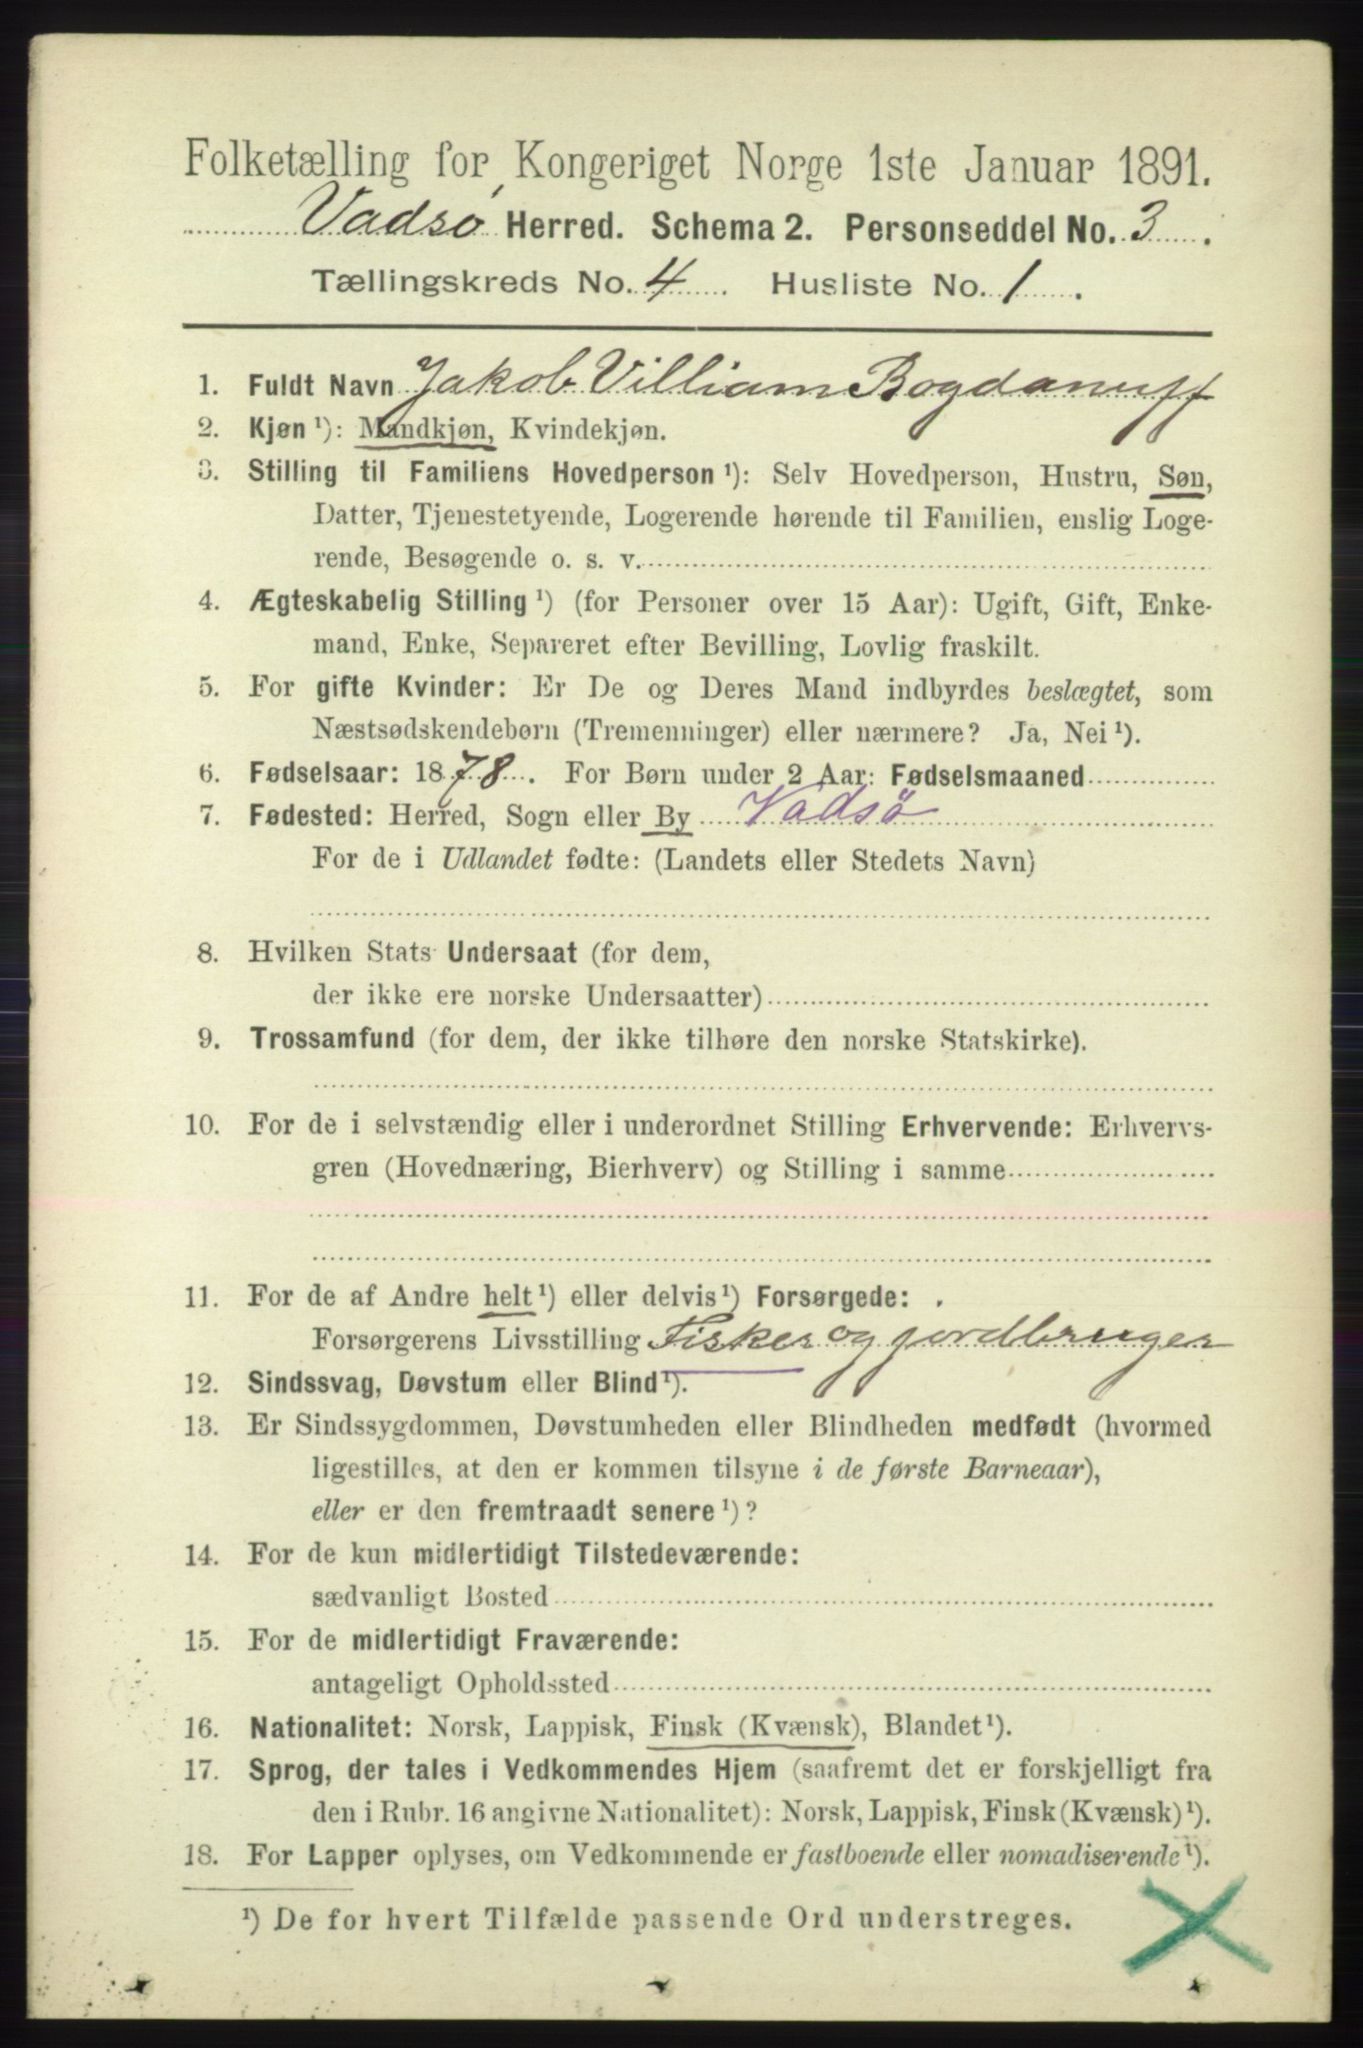 Folketælling for Kongeriget Norge 1ste Januar 1891.
Vadsø Herred. Schema 2. Personseddel No. 3.
Tællingskreds No. 4. Husliste No. 1.
1. Fuldt Navn Jakob Villiam Bogdanuff
2. Kjøn ¹): Mandkjøn, Kvindekjøn.
3. Stilling til Familiens Hovedperson ¹): Selv Hovedperson, Hustru, Søn,
Datter, Tjenestetyende, Logerende hørende til Familien, enslig Loge-
rende, Besøgende o. s. v.
4. Ægteskabelig Stilling ¹) (for Personer over 15 Aar): Ugift, Gift, Enke-
mand, Enke, Separeret efter Bevilling, Lovlig fraskilt.
5. For gifte Kvinder: Er De og Deres Mand indbyrdes beslægtet, som
Næstsødskendebørn (Tremenninger) eller nærmere? Ja, Nei ¹).
6. Fødselsaar: 1878. For Børn under 2 Aar: Fødselsmaaned
7. Fødested: Herred, Sogn eller By Vadsø
For de i Udlandet fødte: (Landets eller Stedets Navn)
8. Hvilken Stats Undersaat (for dem,
der ikke ere norske Undersaatter)
9. Trossamfund (for dem, der ikke tilhøre den norske Statskirke).
10. For de i selvstændig eller i underordnet Stilling Erhvervende: Erhvervs-
gren (Hovednæring, Bierhverv) og Stilling i samme
11. For de af Andre helt ¹) eller delvis ¹) Forsørgede:
Forsørgerens Livsstilling Fisker og jordbruger
12. Sindssvag, Døvstum eller Blind ¹).
13. Er Sindssygdommen, Døvstumheden eller Blindheden medfødt (hvormed
ligestilles, at den er kommen tilsyne i de første Barneaar),
eller er den fremtraadt senere ¹)?
14. For de kun midlertidigt Tilstedeværende:
sædvanligt Bosted
15. For de midlertidigt Fraværende:
antageligt Opholdssted
16. Nationalitet: Norsk, Lappisk, Finsk (Kvænsk), Blandet ¹).
17. Sprog, der tales i Vedkommendes Hjem (saafremt det er forskjelligt fra
den i Rubr. 16 angivne Nationalitet): Norsk, Lappisk, Finsk (Kvænsk) ¹).
18. For Lapper oplyses, om Vedkommende er fastboende eller nomadiserende ¹).
¹) De for hvert Tilfælde passende Ord understreges.